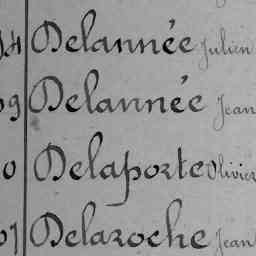 Delannée Julien
Delannée Jean
Delaporte Olivier
Delaroche Jean